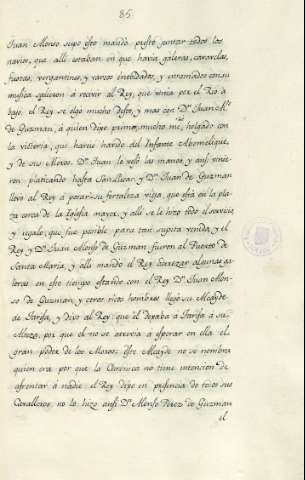 85.
Juan Alonso supo esto mandó presto juntar todos los
navios, que alli estaban en que havia galeras, caravelas,
fustas, vergantines, y varcos entoldados, y enramados con su
musica salieron á recivir al Rey, que venia por el Rio á
bajo. el Rey se olgó mucho desto, y mas con Dn. Juan Alº.
de Guzman, á quien dijo primo, mucho me holgado con
la vitoria, que haveis havido del Infante Abomelique,
y de sus Moros. Dn. Juan le vesó las manos, y ansi vinie
ron platicando hasta Sanlucar y Dn. Juan de Guzman
llevó al Rey á posar su fortaleza vieja, que está en la pla
za cerca de la Iglesia mayor, y alli se le hizo todo el servicio
y regalo, que fue posible para tan supita venida, y el
Rey y Dn. Juan Alonso de Guzman fueron al Puerto de
Santa Maria, y alli mandó el Rey aderezar algunas ga
leras, en este tiempo estando con el Rey Dn. Juan Alon-
so de Guzman, y otros ricos hombres llegó su Alcayde
de Tarifa, y dijo al Rey que él dejaba á Tarifa á su
Alteza, por que él no se atrevia á esperar en ella el
gran poder de los Moros: este Alcayde no se nombra
quien era por que la Coronica no tiene intencion de
afrentar á nadie. el Rey dijo en presencia de todos sus
Cavalleros, no lo hizo ansi Dn. Alonso Perez de Guzman
el